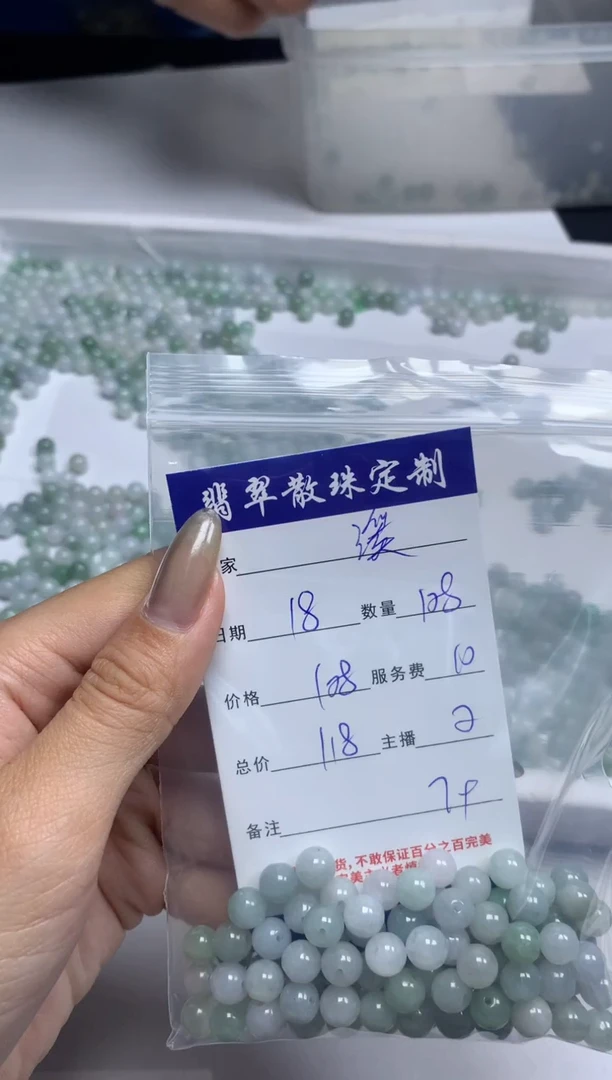 翡翠散珠定制
家
日期 18 数量 108
价格 108 服务费 10
总价 118 主播 2
备注
货,不敢保证百分之百完美